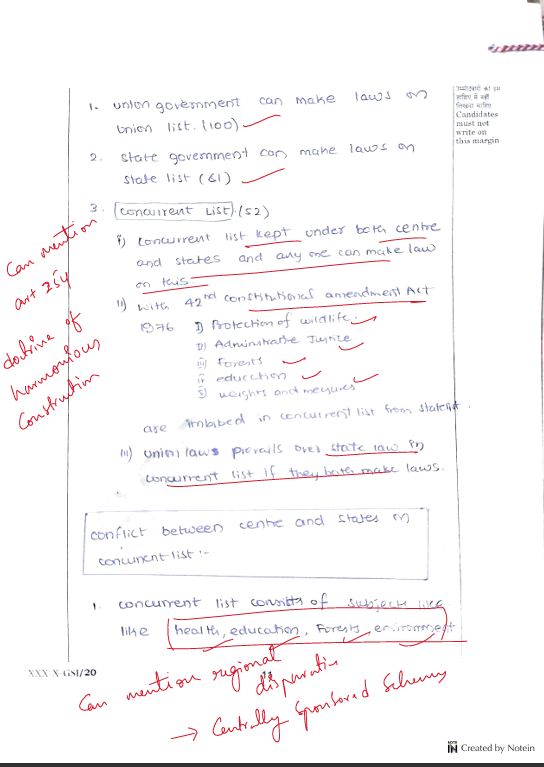 1. union government can make laws on
union list. (100)
2. state government can make laws on
state list (61)
3. concurrent List. (52)
i) concurrent list kept under both centre
and states and any one can make law
on this
ii) with 42nd constitutional amendment Act
1976 I) Protection of wildlife.
II) Administrative Justice
iii) Forests
iv education
5) weights and measures
are imbibed in concurrent list from statelist.
iii) union laws prevails over state law in
concurrent list if they both make laws.
conflict between centre and states on
concurrent list :-
1. concurrent list consists of subjects like
like health, education, Forests, environment
उम्मीदवारों को इस
हाशिए में नहीं
लिखना चाहिए
Candidates
must not
write on
this margin
Can mention
art 254
doctrine of
harmonious
Construction
XXX X-GSI/20
Can mention regional
disparities
→ Centrally Sponsored Schemes
NOTE
IN Created by Notein